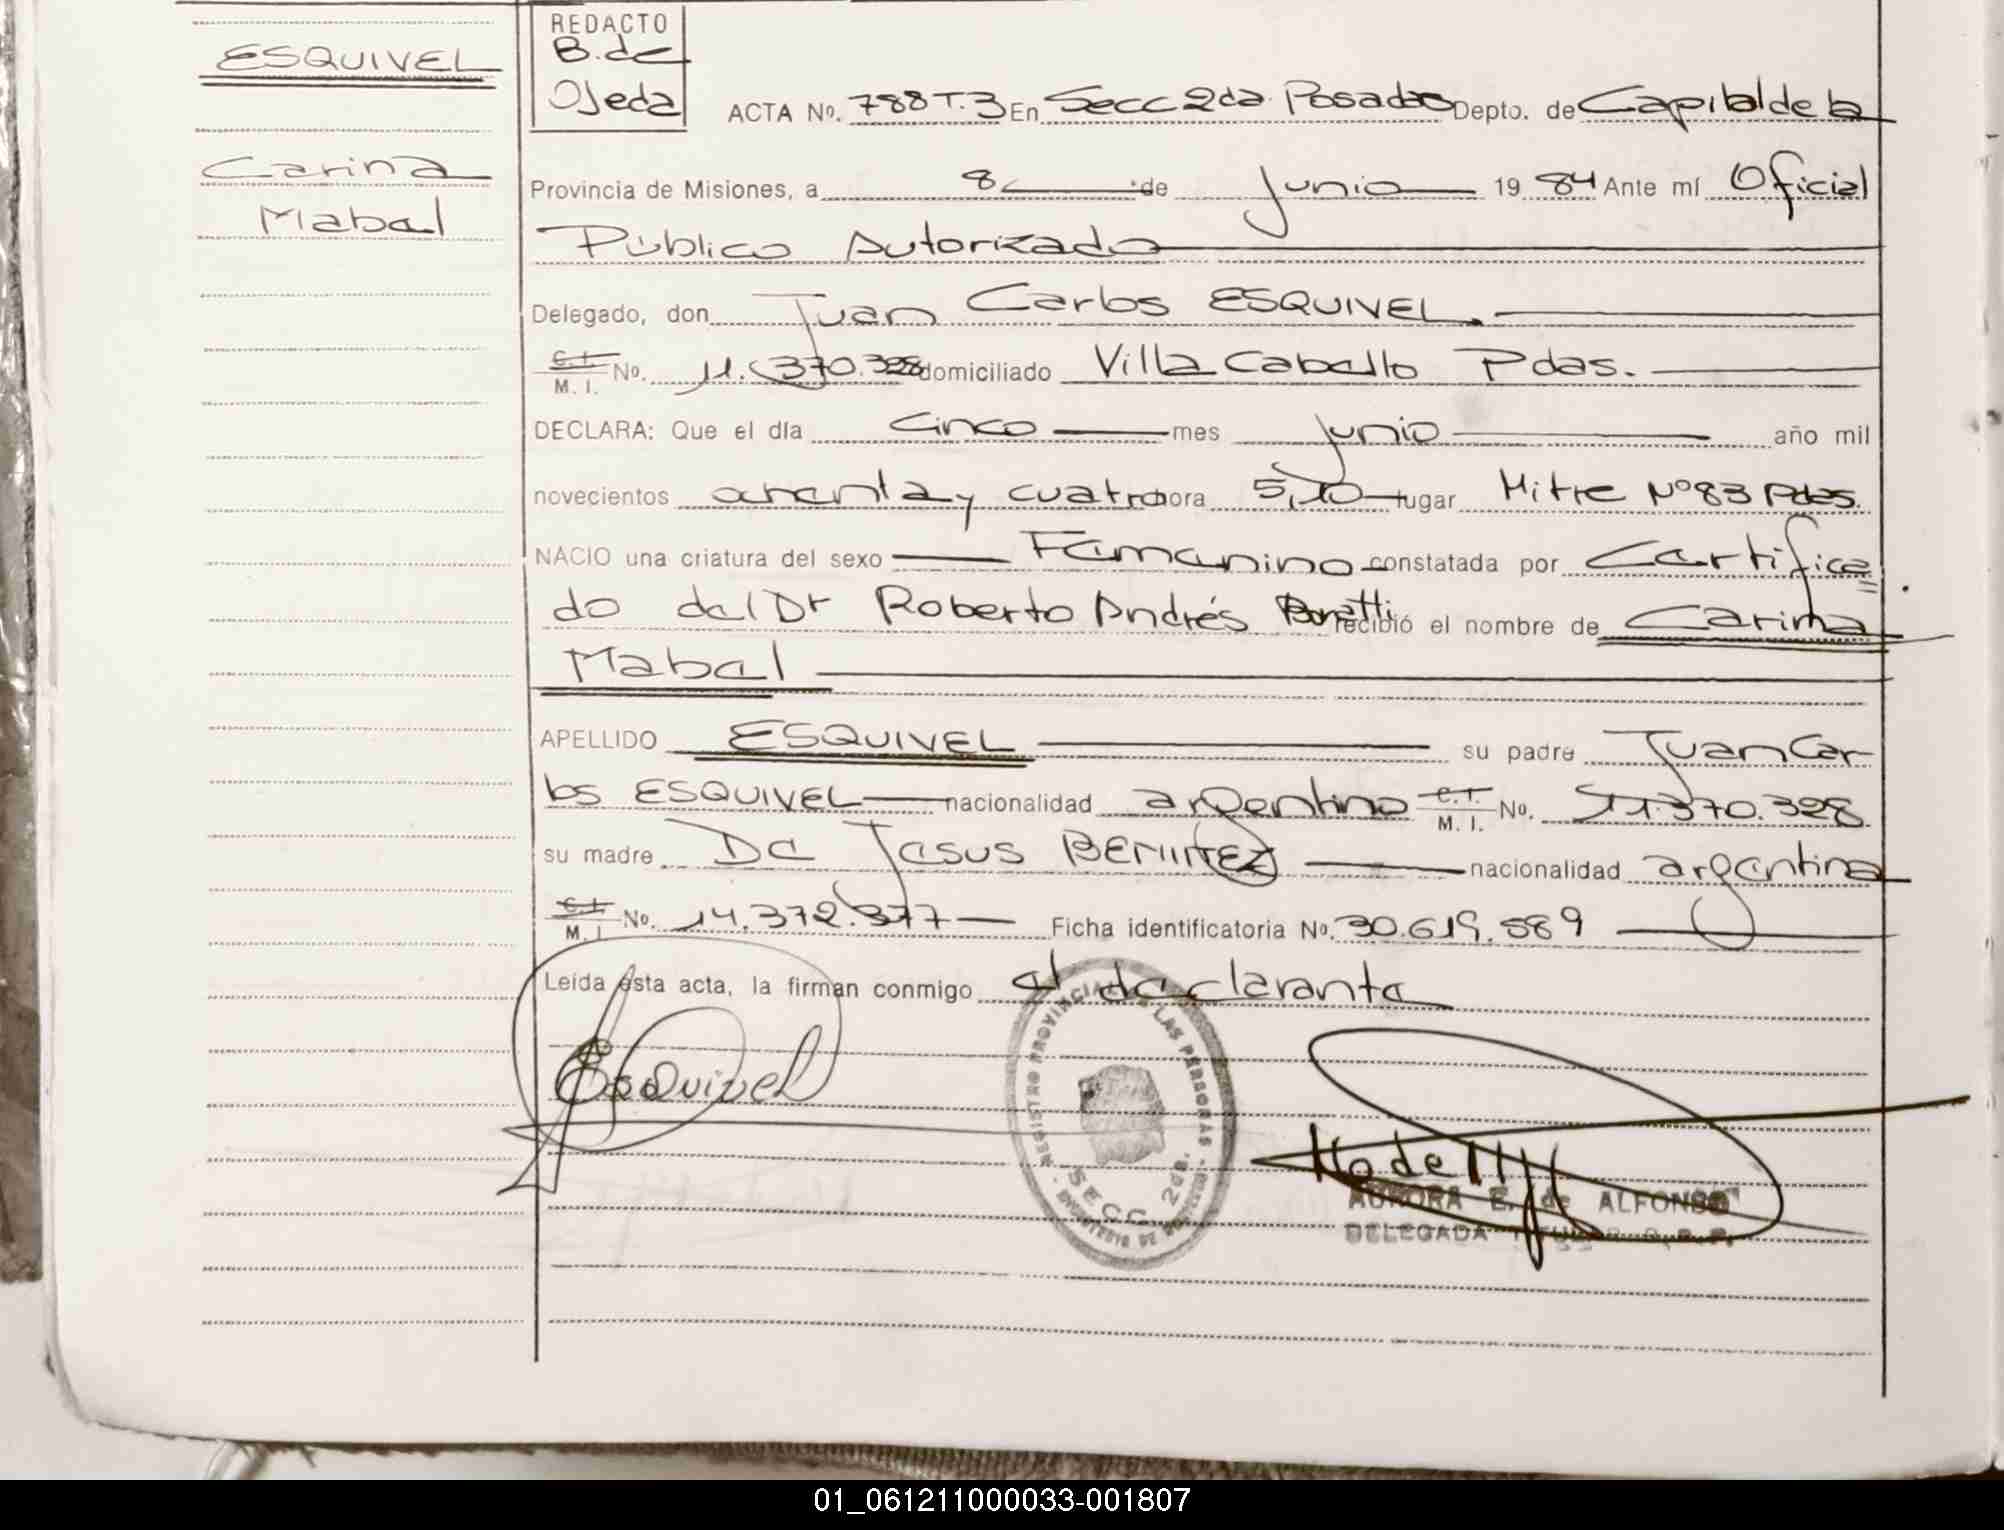 ESQUIVEL
Carina
Mabel
REDACTO
B. de
Ojeda
ACTA Nº. 788 T.3 En Secc 2da. Posadas Depto. de Capital de la
Provincia de Misiones, a 8 de Junio 19 84 Ante mí Oficial
Público Autorizado
Delegado, don Juan Carlos ESQUIVEL.
C.I.
M. I. Nº. 11.370.328 domiciliado Villa Cabello Pdas.
DECLARA: Que el día cinco mes junio año mil
novecientos ochenta y cuatro hora 5,10 lugar Mitre Nº 83 Pdas.
NACIO una criatura del sexo Femenino constatada por Certifica=
do del Dr Roberto Andrés recibió el nombre de Carina
Mabel
APELLIDO ESQUIVEL su padre Juan Car
los ESQUIVEL nacionalidad argentino C.I.
M. I. Nº. 11.370.328
su madre De Jesus BENITEZ nacionalidad argentina
C.I.
M. I. Nº. 14.372.377 Ficha identificatoria Nº. 30.619.589
Leída esta acta, la firman conmigo el declarante
Esquivel
REGISTRO PROVINCIAL DE LAS PERSONAS
SECC. 2da.
AURORA E. de ALFONSO
DELEGADA TITULAR R. P. P.
01_061211000033-001807